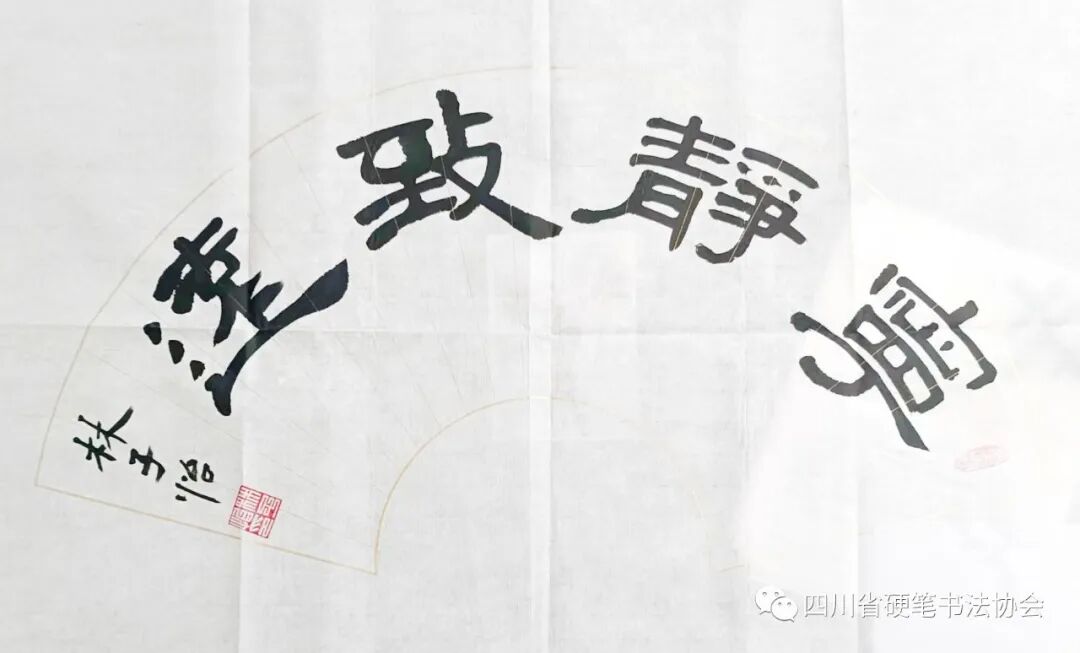 寧靜致遠
林子怡
四川省硬笔书法协会